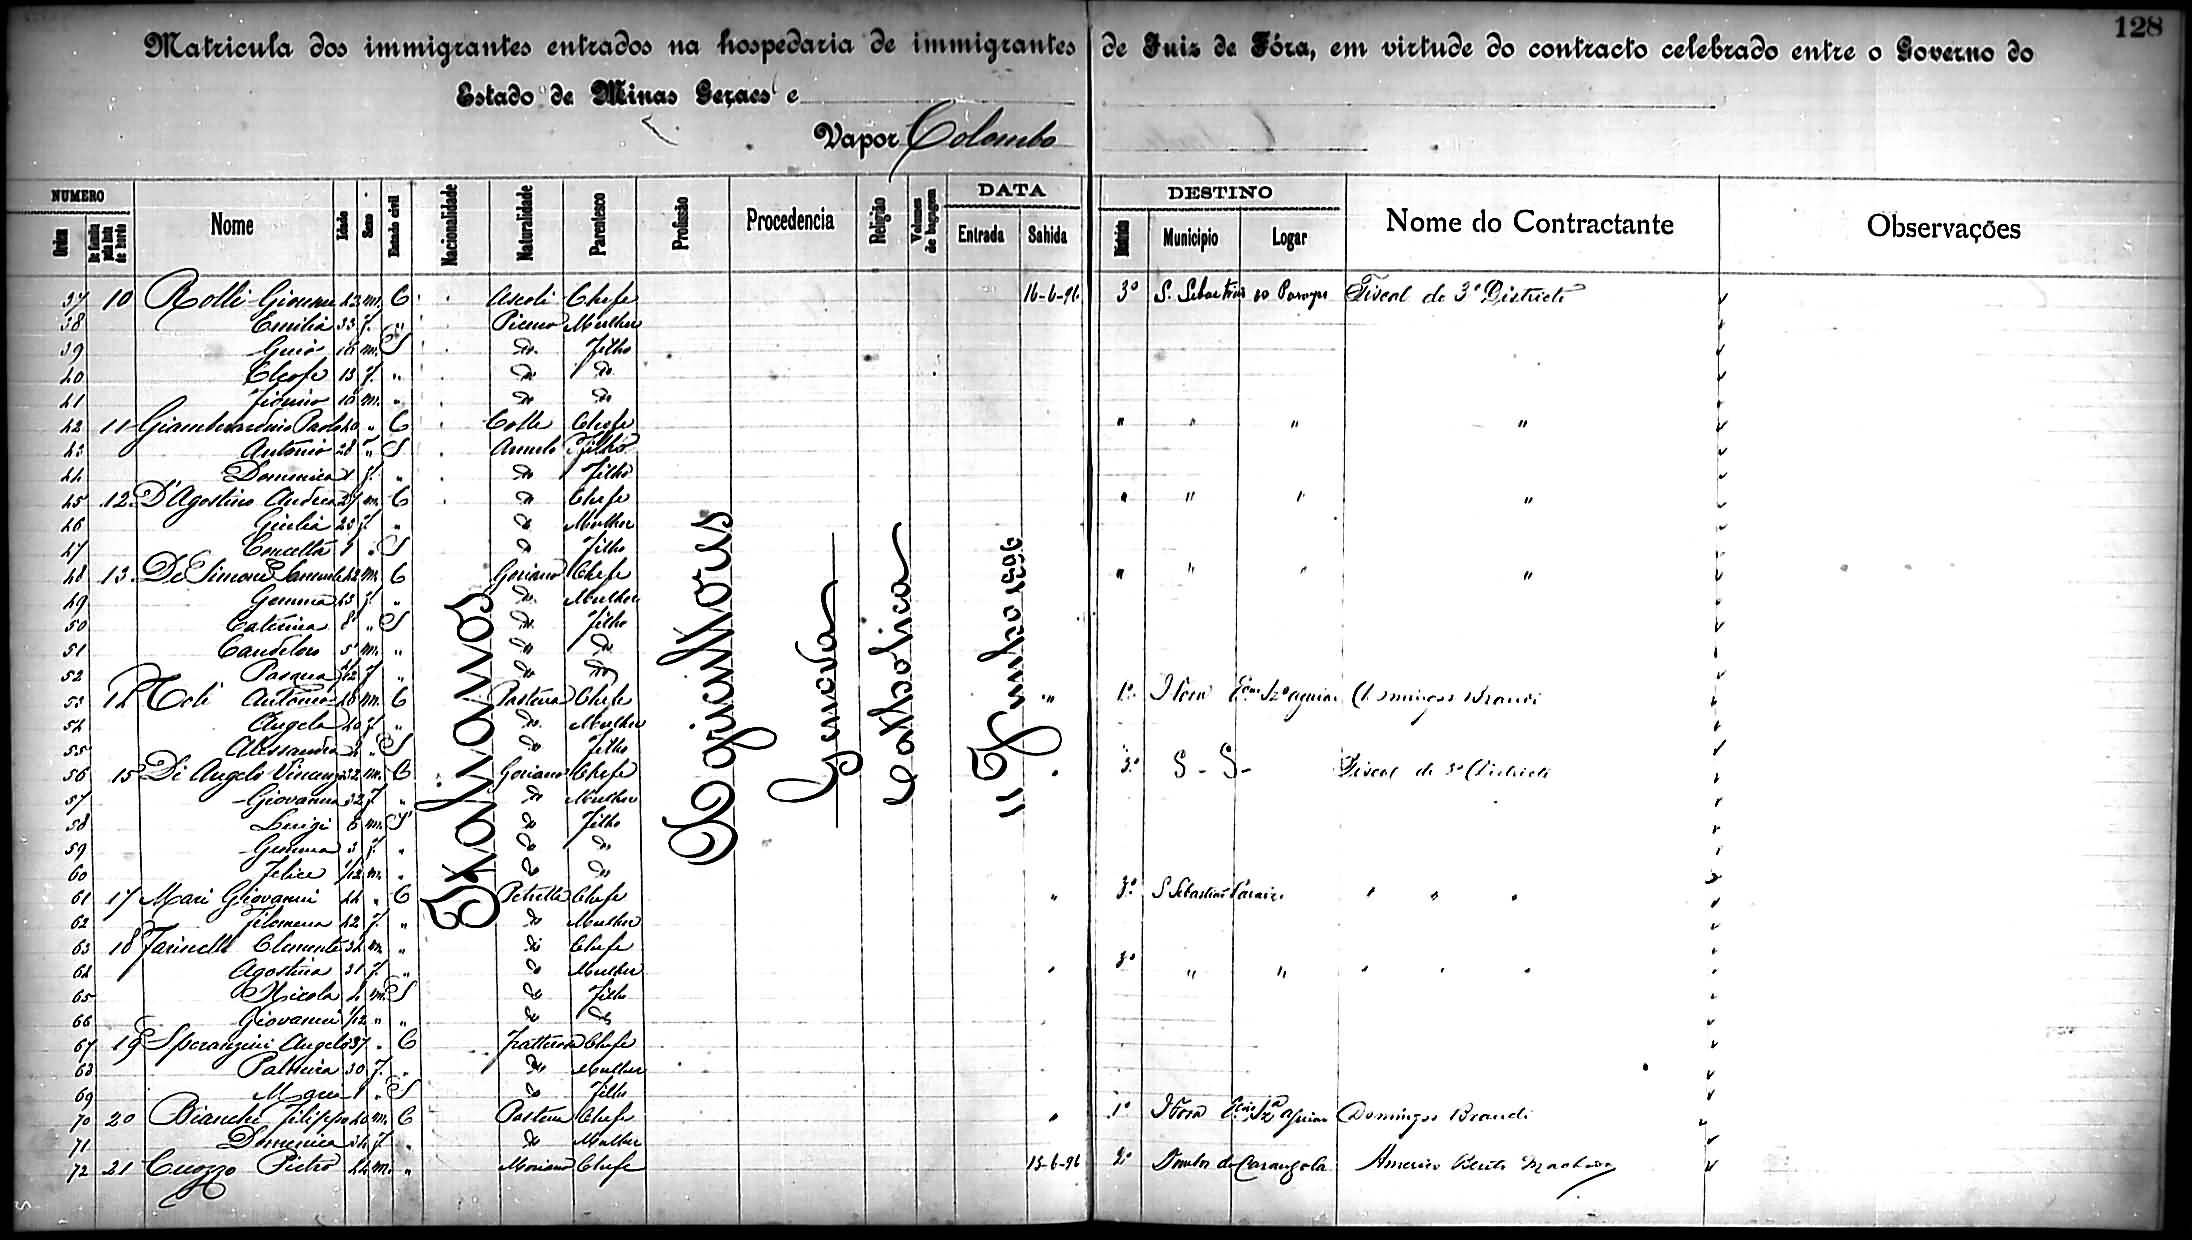 128
Matricula dos immigrantes entrados na hospedaria de immigrantes de Juiz de Fóra, em virtude do contracto celebrado entre o Governo do
Estado de Minas Geraes e
Vapor Colombo
NUMERO DATA DESTINO
Ordem De familia pela lista de bordo Nome Edade Sexo Estado civil Nacionalidade Naturalidade Parentesco Profissão Procedencia Religião Volumes de bagagem Entrada Sahida Districto Municipio Logar Nome do Contractante Observações
Italianos
Agricultores
Genova
Catholica
11 Junho 1896
37 10 Rolli Giovanni 42 m. C Ascoli Chefe 16-6-96 3º S. Sebastião do Fiscal do 3º Districto
38 Emilia 33 f. " Piceno Mulher
39 16 m. S do Filho
40 13 f. " do do
41 10 m. " do do
42 11 Paolo " C Colle Chefe " " " "
43 Antonio 28 " S Filho
44 Domenica f. " do Filho
45 12 D'Agostino Andrea 27 m. C do Chefe " " " "
46 Giulia 23 f. " do Mulher
47 Concetta 1 " S do Filho
48 13 De Simone 42 m. C Goriano Chefe " " " "
49 Gemma 43 f. " do Mulher
50 Caterina 8 " S do Filho
51 Candeloro 5 m. " do do
52 f " do do
53 14 Toli Antonio 48 m. C Pastena Chefe " 1º J Fóra Domingos Brandi
54 Angela 40 f. " do Mulher
55 Alessandra 2 " S do Filho
56 15 Di Angelo Vincenzo 32 m. C Goriano Chefe " 3º S - S - Fiscal do 3º Districto
57 Giovanna 32 f. " do Mulher
58 Luigi 6 m. S do Filho
59 Gemma 3 f. " do do
60 Felice /12 m. " do do
61 17 Mari Giovanni 44 " C Petrella Chefe " 3º S Sebastião Paraizo " " "
62 Filomena 42 f. " do Mulher
63 18 Farinelli Clemente 34 m. " do Chefe
64 Agostina 31 f. " do Mulher " 3º " " " " "
65 Nicola 4 m. S do Filho
66 Giovanni /12 " " do do
67 19 Speranzini Angelo 37 " C Chefe
68 Palmira 30 f. " do Mulher
69 1 " S do Filho
70 20 Bianchi Filippo 40 m. C Pastena Chefe " 1º J Fóra Domingos Brandi
71 Domenica 34 f. " do Mulher
72 21 Cuozzo Pietro 44 m. " Chefe 15-6-96 2º Tombos do Carangola Americo